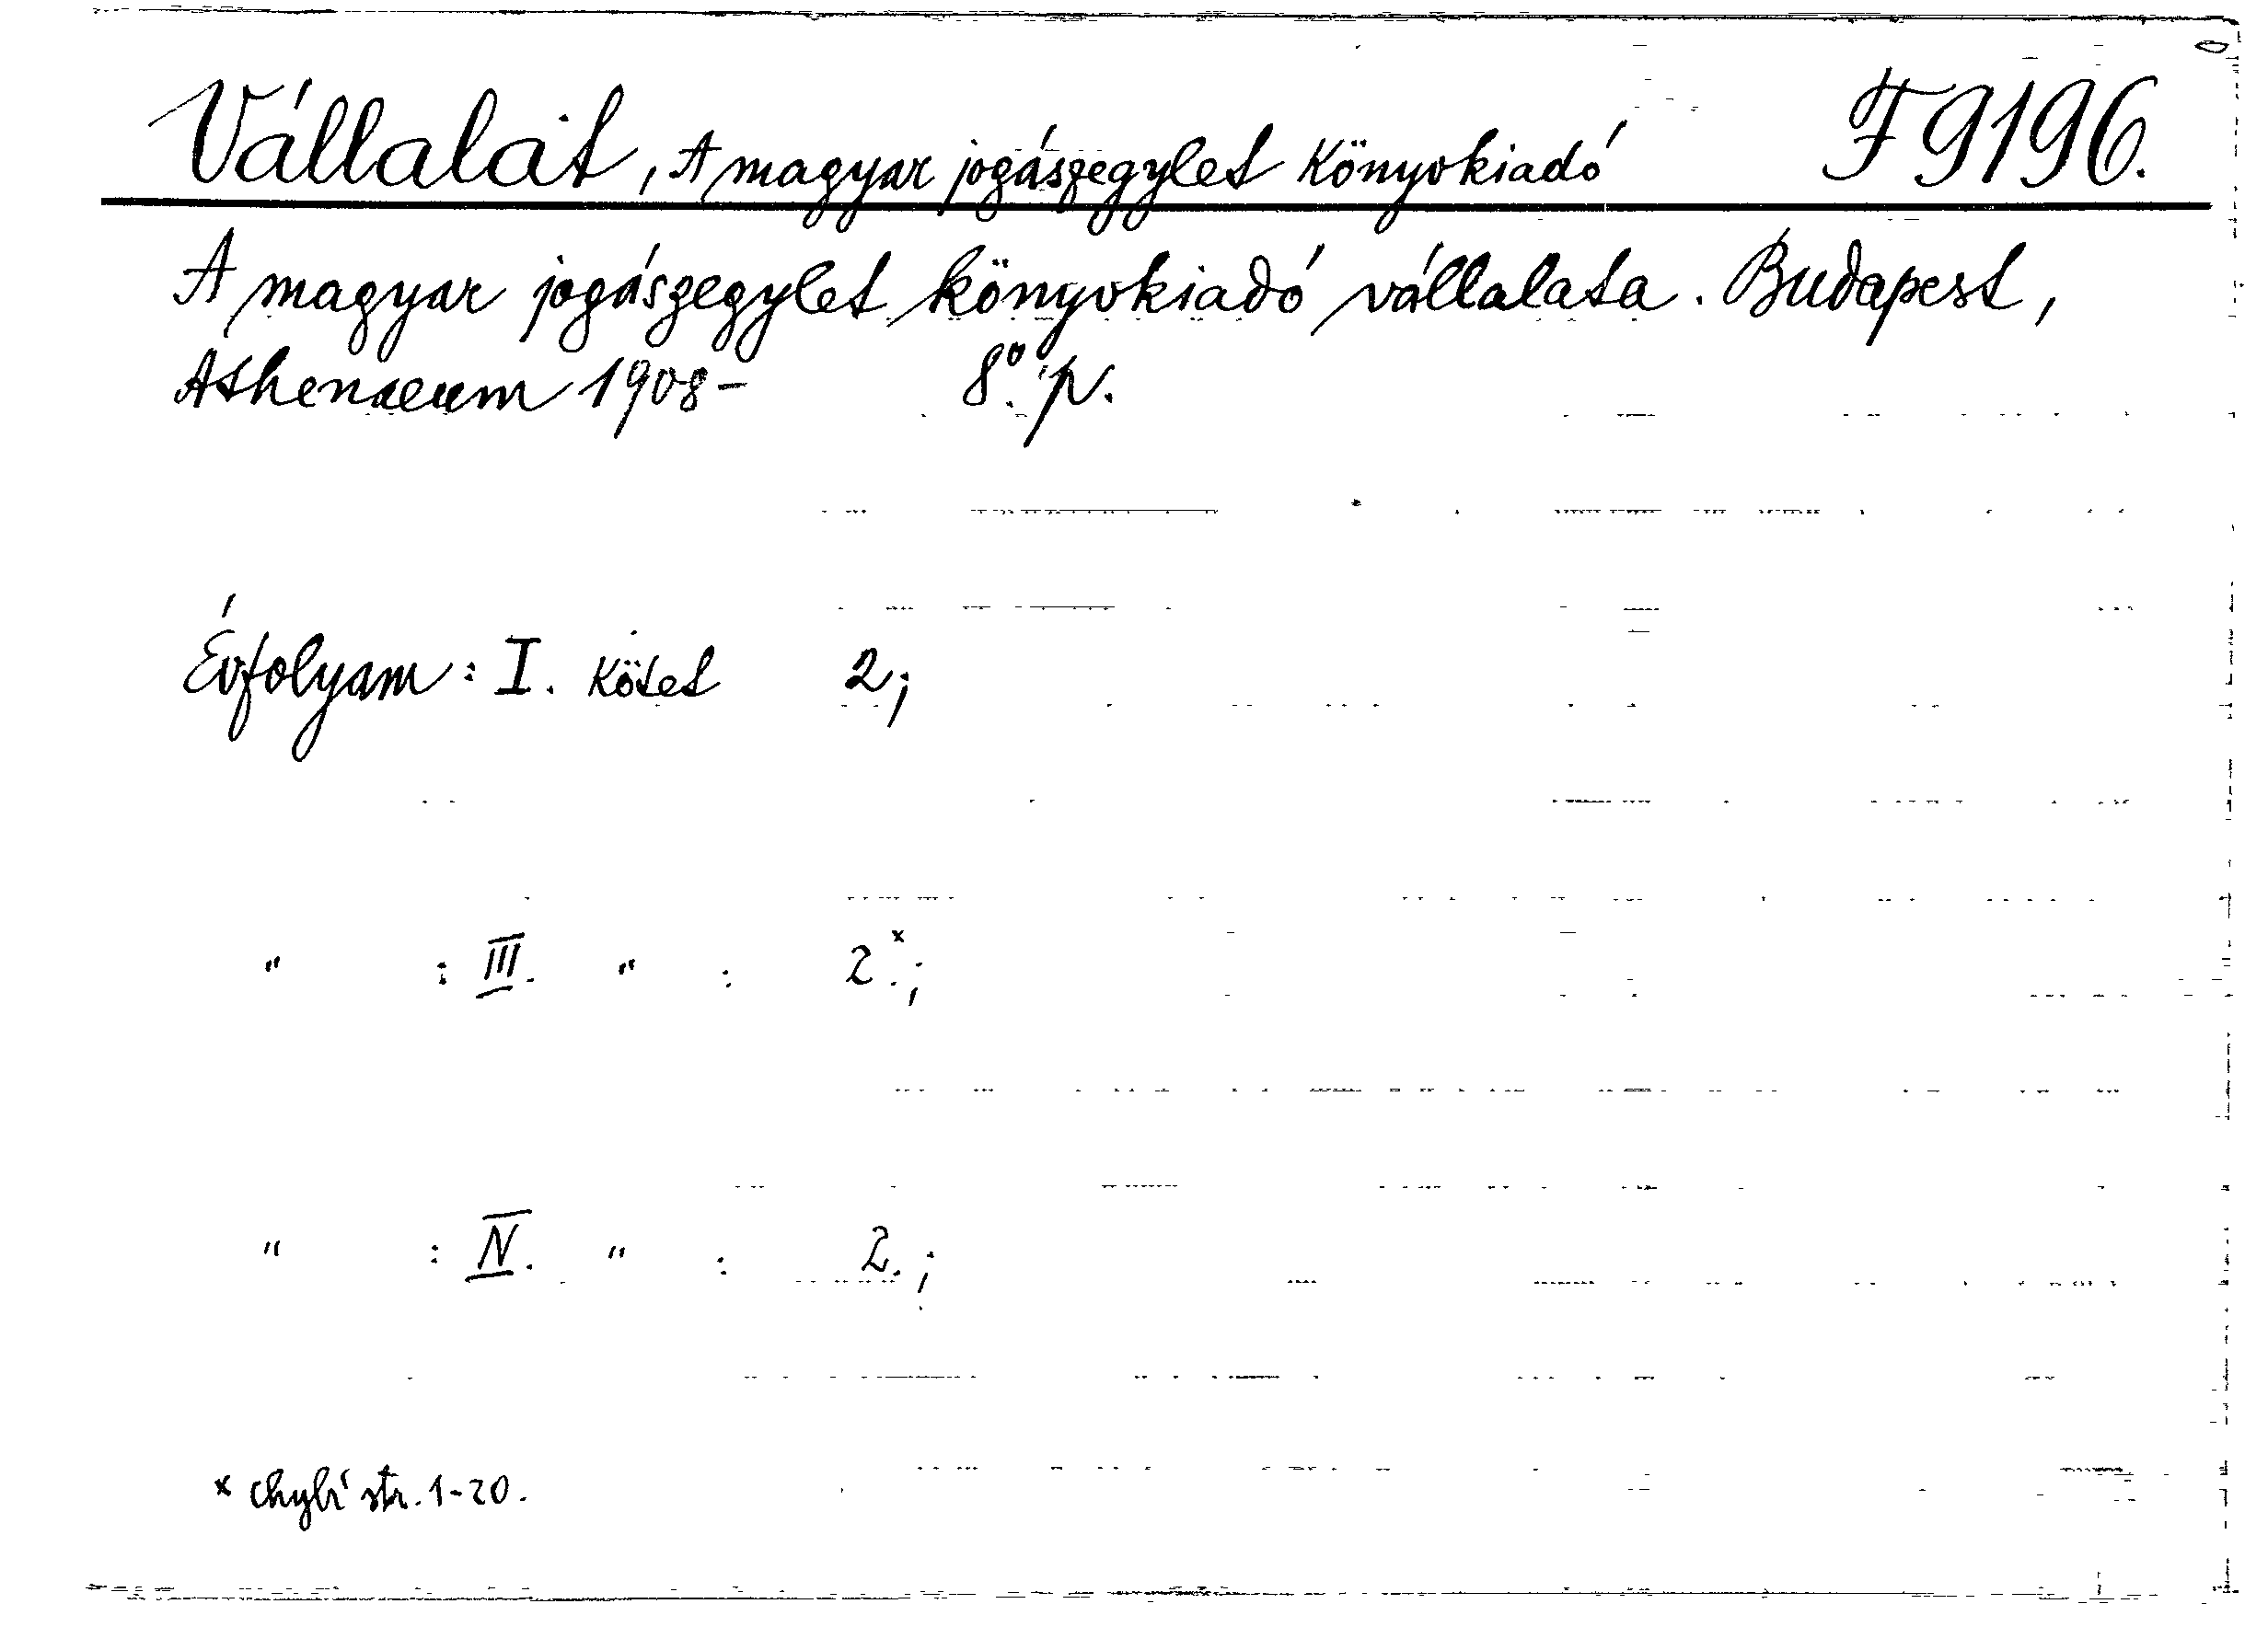 Vállalat, A magyar jogászegylet Könyvkiadó F 9196.
A magyar jogászegylet könyvkiadó vállalata. Budapest,
Athenaeum 1908- 8° p.
Évfolyam: I. Kötet 2;
" : III. " : 2.x;
" : IV. " : 2.;
x chybí str. 1-20.